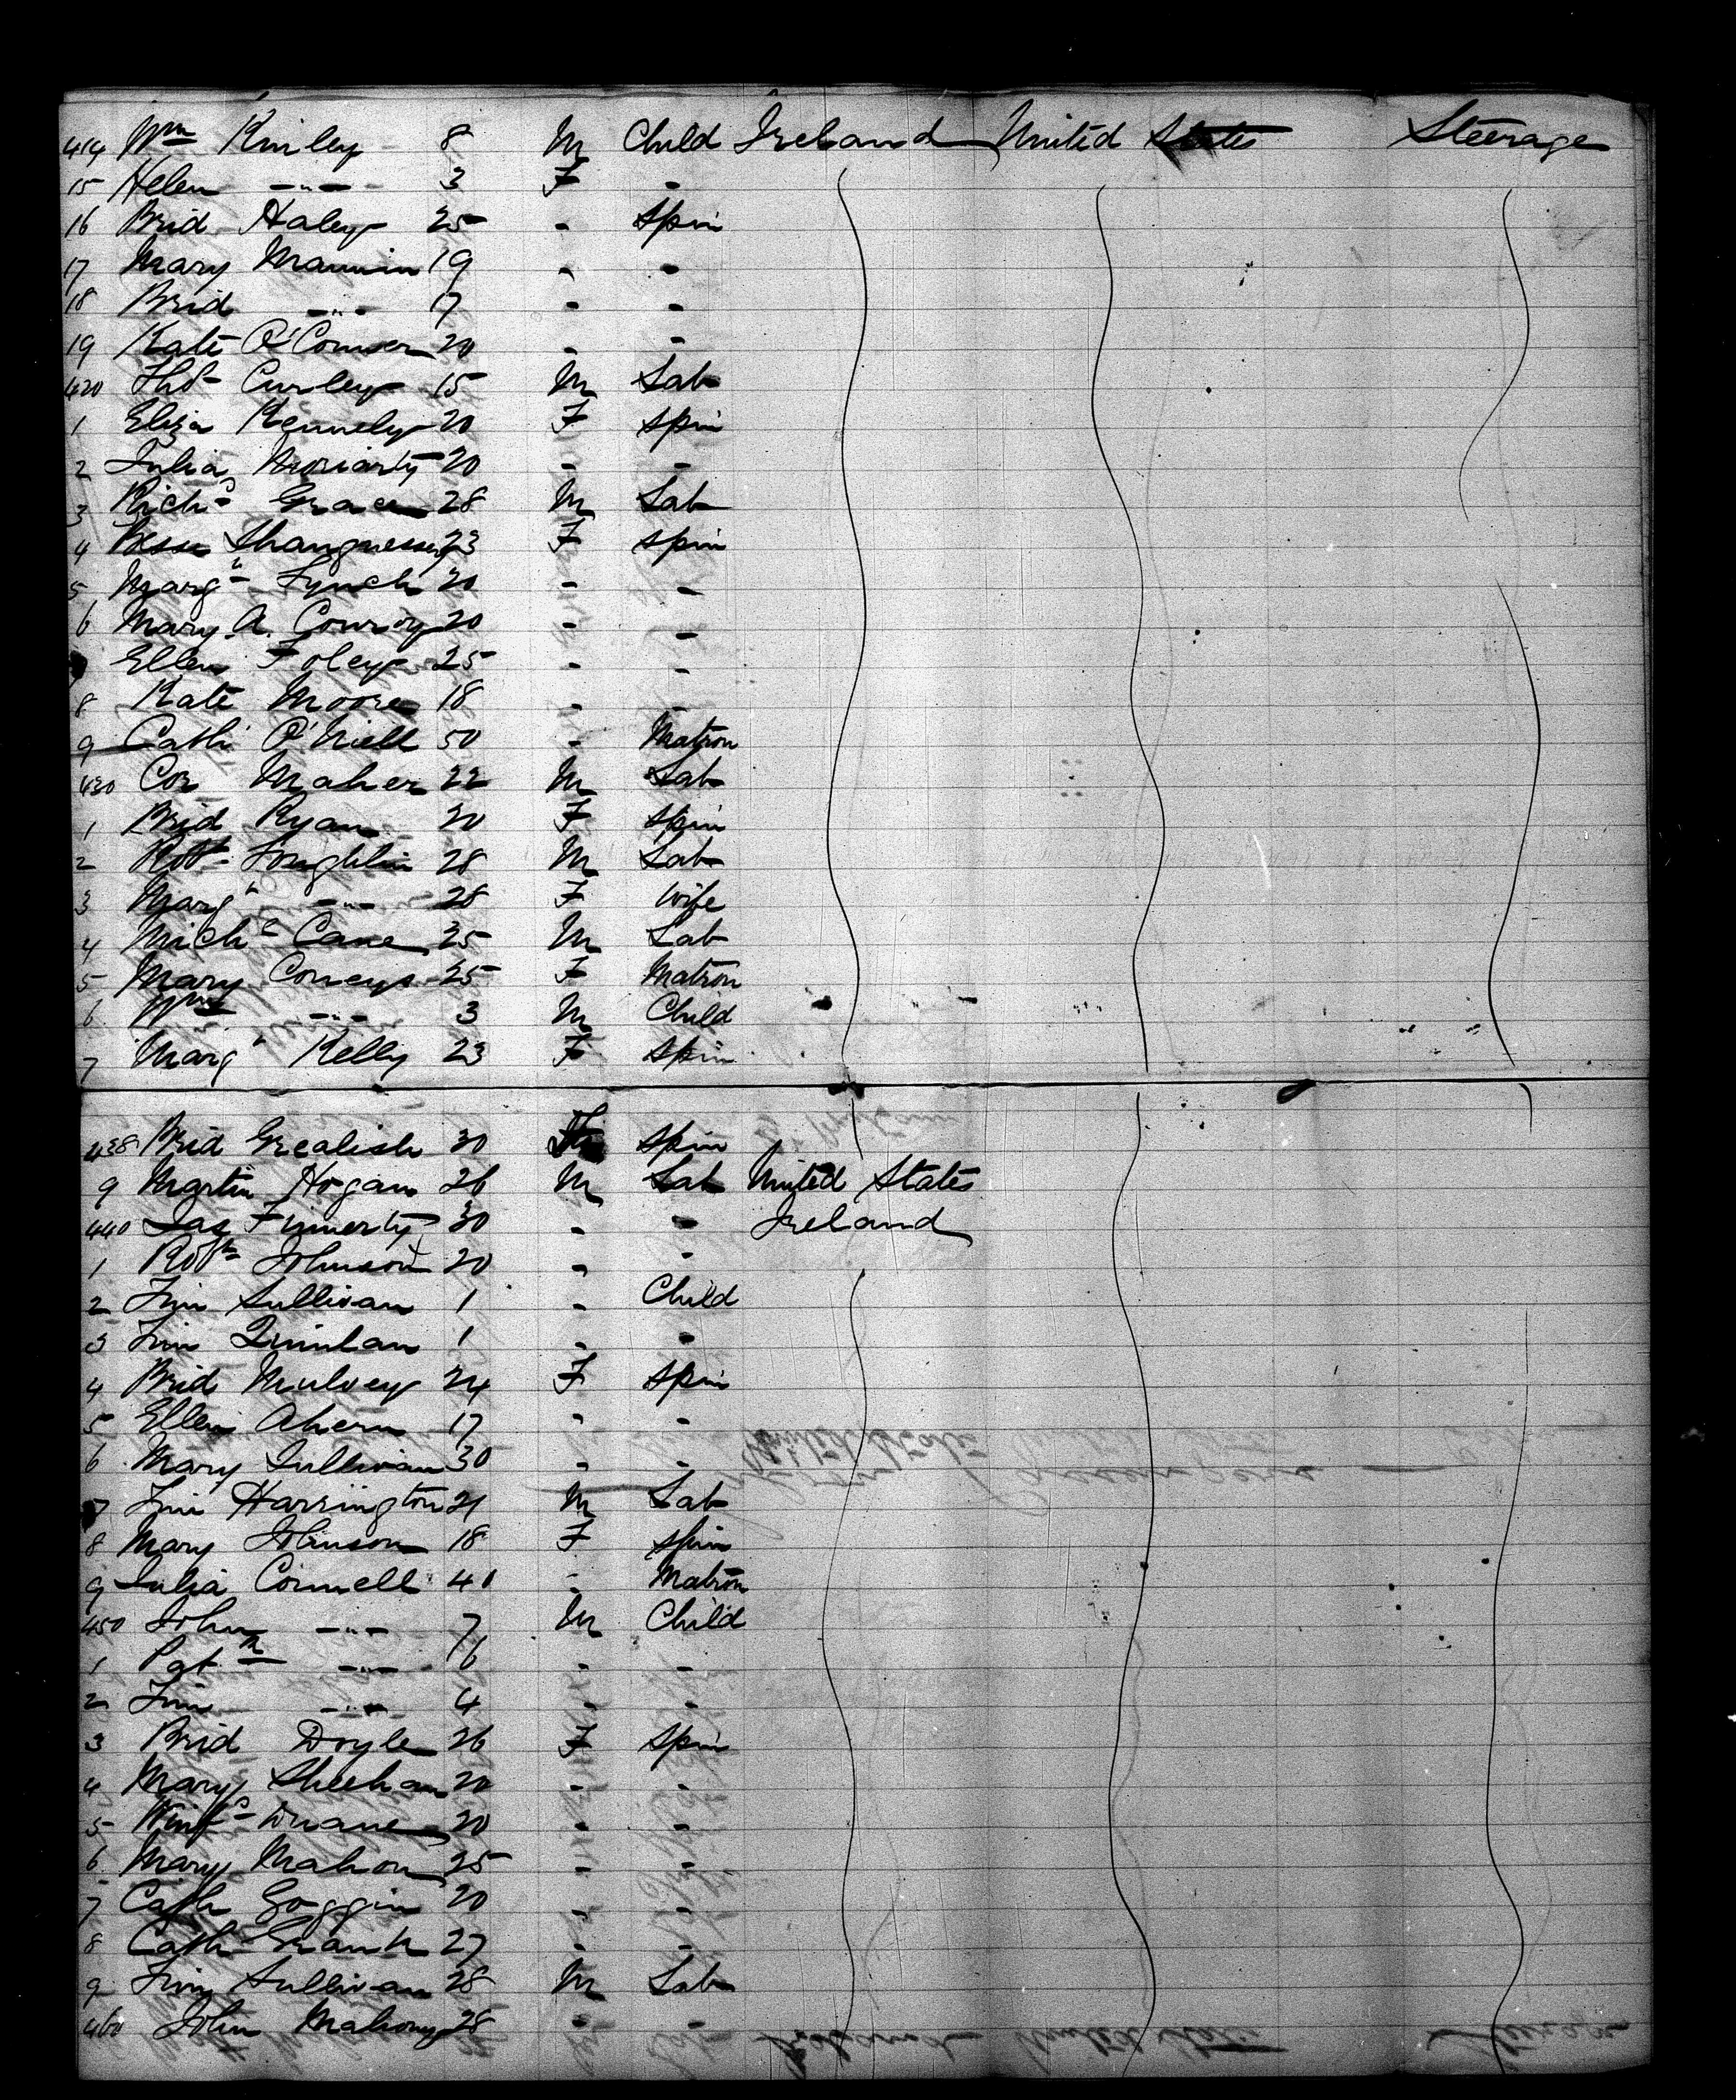 414 Wm Kinley 8 M Child Ireland United States Steerage
15 Helen -"- 3 F -
16 Brid Haley 25 - Spin
17 Mary Mannin 19 - -
18 Brid -"- 17 - -
19 Kate O'Connor 20 - -
420 Thos Curley 15 M Lab
1 Eliza Kennely 20 F Spin
2 Julia Moriarty 20 - -
3 Richd Grace 28 M Lab
4 Besse Shaugnessey 23 F Spin
5 Margt Lynch 20 - -
6 Mary A. Conroy 20 - -
Ellen Foley 25 - -
8 Kate Moore 18 - -
9 Cath O'Niell 50 - Matron
430 Cor Maher 22 M Lab
1 Brid Ryan 20 F Spin
2 Robt Loughlin 28 M Lab
3 Margt -"- 28 F Wife
4 Michl Cane 25 M Lab
5 Mary Coneys 25 F Matron
6 Wm -"- 3 M Child
7 Margt Kelly 23 F Spin
438 Brid Grealish 30 Spin
9 Martin Hogan 26 M Lab United States
440 Jas Finnerty 30 - - Ireland
1 Robt Johnson 20 - -
2 Tim Sullivan 1 - Child
3 Tim Quinlan 1 - -
4 Brid Mulvey 24 F Spin
5 Ellen Ahern 17 - -
6 Mary Sullivan 30 - -
7 Tim Harrington 21 M Lab
8 Mary Johnson 18 F Spin
9 Julia Connell 40 - Matron
450 John -"- 7 M Child
1 Patk -"- 6 - -
2 Tim -"- 4 - -
3 Brid Doyle 26 F Spin
4 Mary Sheehan 20 - -
5 Winfd Duane 20 - -
6 Mary Mahon 25 - -
7 Cath Goggin 20 - -
8 Cath 27 - -
9 Tim Sullivan 28 M Lab
460 John Mahony 28 - -